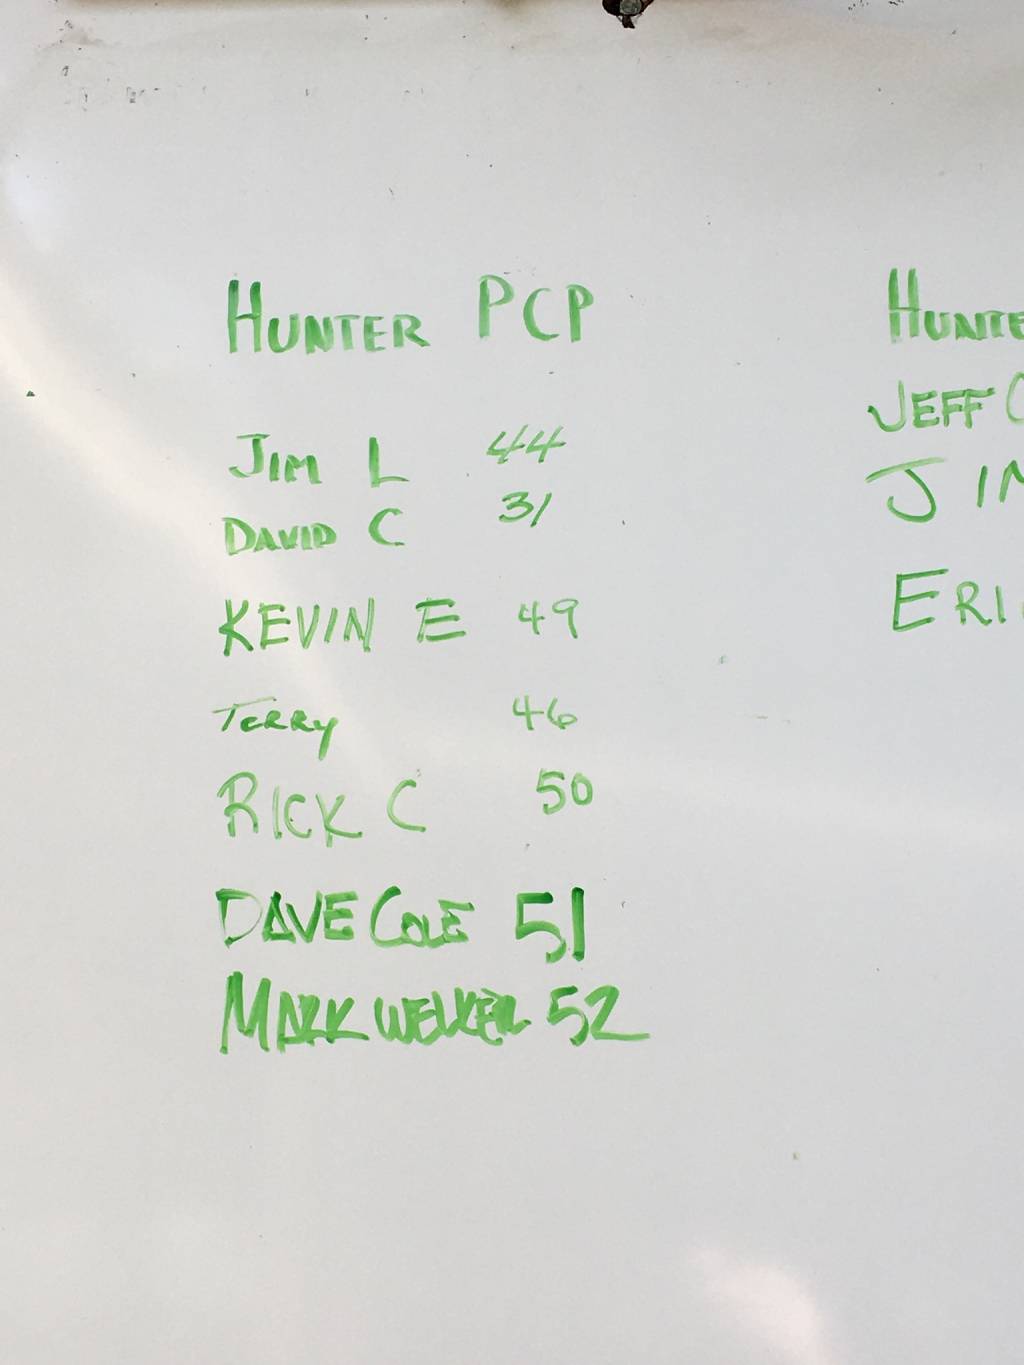 HUNTER PCP
JIM L 44
DAVID C 31
KEVIN E 49
TERRY 46
RICK C 50
DAVE COLE 51
MARK WELKER 52
HUNTE
JEFF C
JIM
ERI